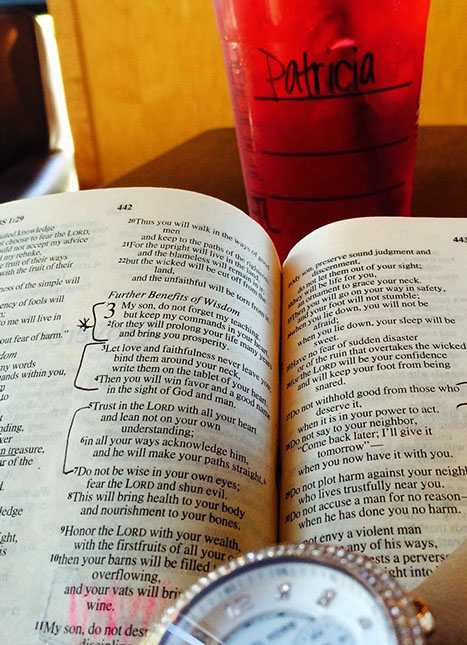 Patricia
S 1:29
442
443
ated knowledge
choose to fear the LORD,
ld not accept my advice
my rebuke,
e fruit of their ways
with the fruit of their
ness of the simple will
ency of fools will
to me will live in
out fear of harm."
dom
my words
ands within you,
in treasure,
20Thus you will walk in the ways of good
men
and keep to the paths of the righteous.
21For the upright will live in the land,
and the blameless will remain in it;
22but the wicked will be cut off from the
land,
and the unfaithful will be torn from it.
Further Benefits of Wisdom
3 My son, do not forget my teaching,
but keep my commands in your heart,
2for they will prolong your life many years
and bring you prosperity.
3Let love and faithfulness never leave you;
bind them around your neck,
write them on the tablet of your heart.
4Then you will win favor and a good name
in the sight of God and man.
5Trust in the LORD with all your heart
and lean not on your own
understanding;
6in all your ways acknowledge him,
and he will make your paths straight.
7Do not be wise in your own eyes;
fear the LORD and shun evil.
8This will bring health to your body
and nourishment to your bones.
9Honor the LORD with your wealth,
with the firstfruits of all your
10then your barns will be filled
overflowing,
and your vats will bri
wine.
11My son, do not des
My son, preserve sound judgment and
discernment,
do not let them out of your sight;
they will be life for you,
an ornament to grace your neck.
Then you will go on your way in safety,
and your foot will not stumble;
when you lie down, you will not be
afraid;
when you lie down, your sleep will be
sweet.
Have no fear of sudden disaster
or of the ruin that overtakes the wicked
for the LORD will be your confidence
and will keep your foot from being
snared.
Do not withhold good from those who
deserve it,
when it is in your power to act.
Do not say to your neighbor,
"Come back later; I'll give it
tomorrow"—
when you now have it with you.
Do not plot harm against your neigh
who lives trustfully near you.
Do not accuse a man for no reason—
when he has done you no harm.
not envy a violent man
any of his ways,
ests a perverse
ight into